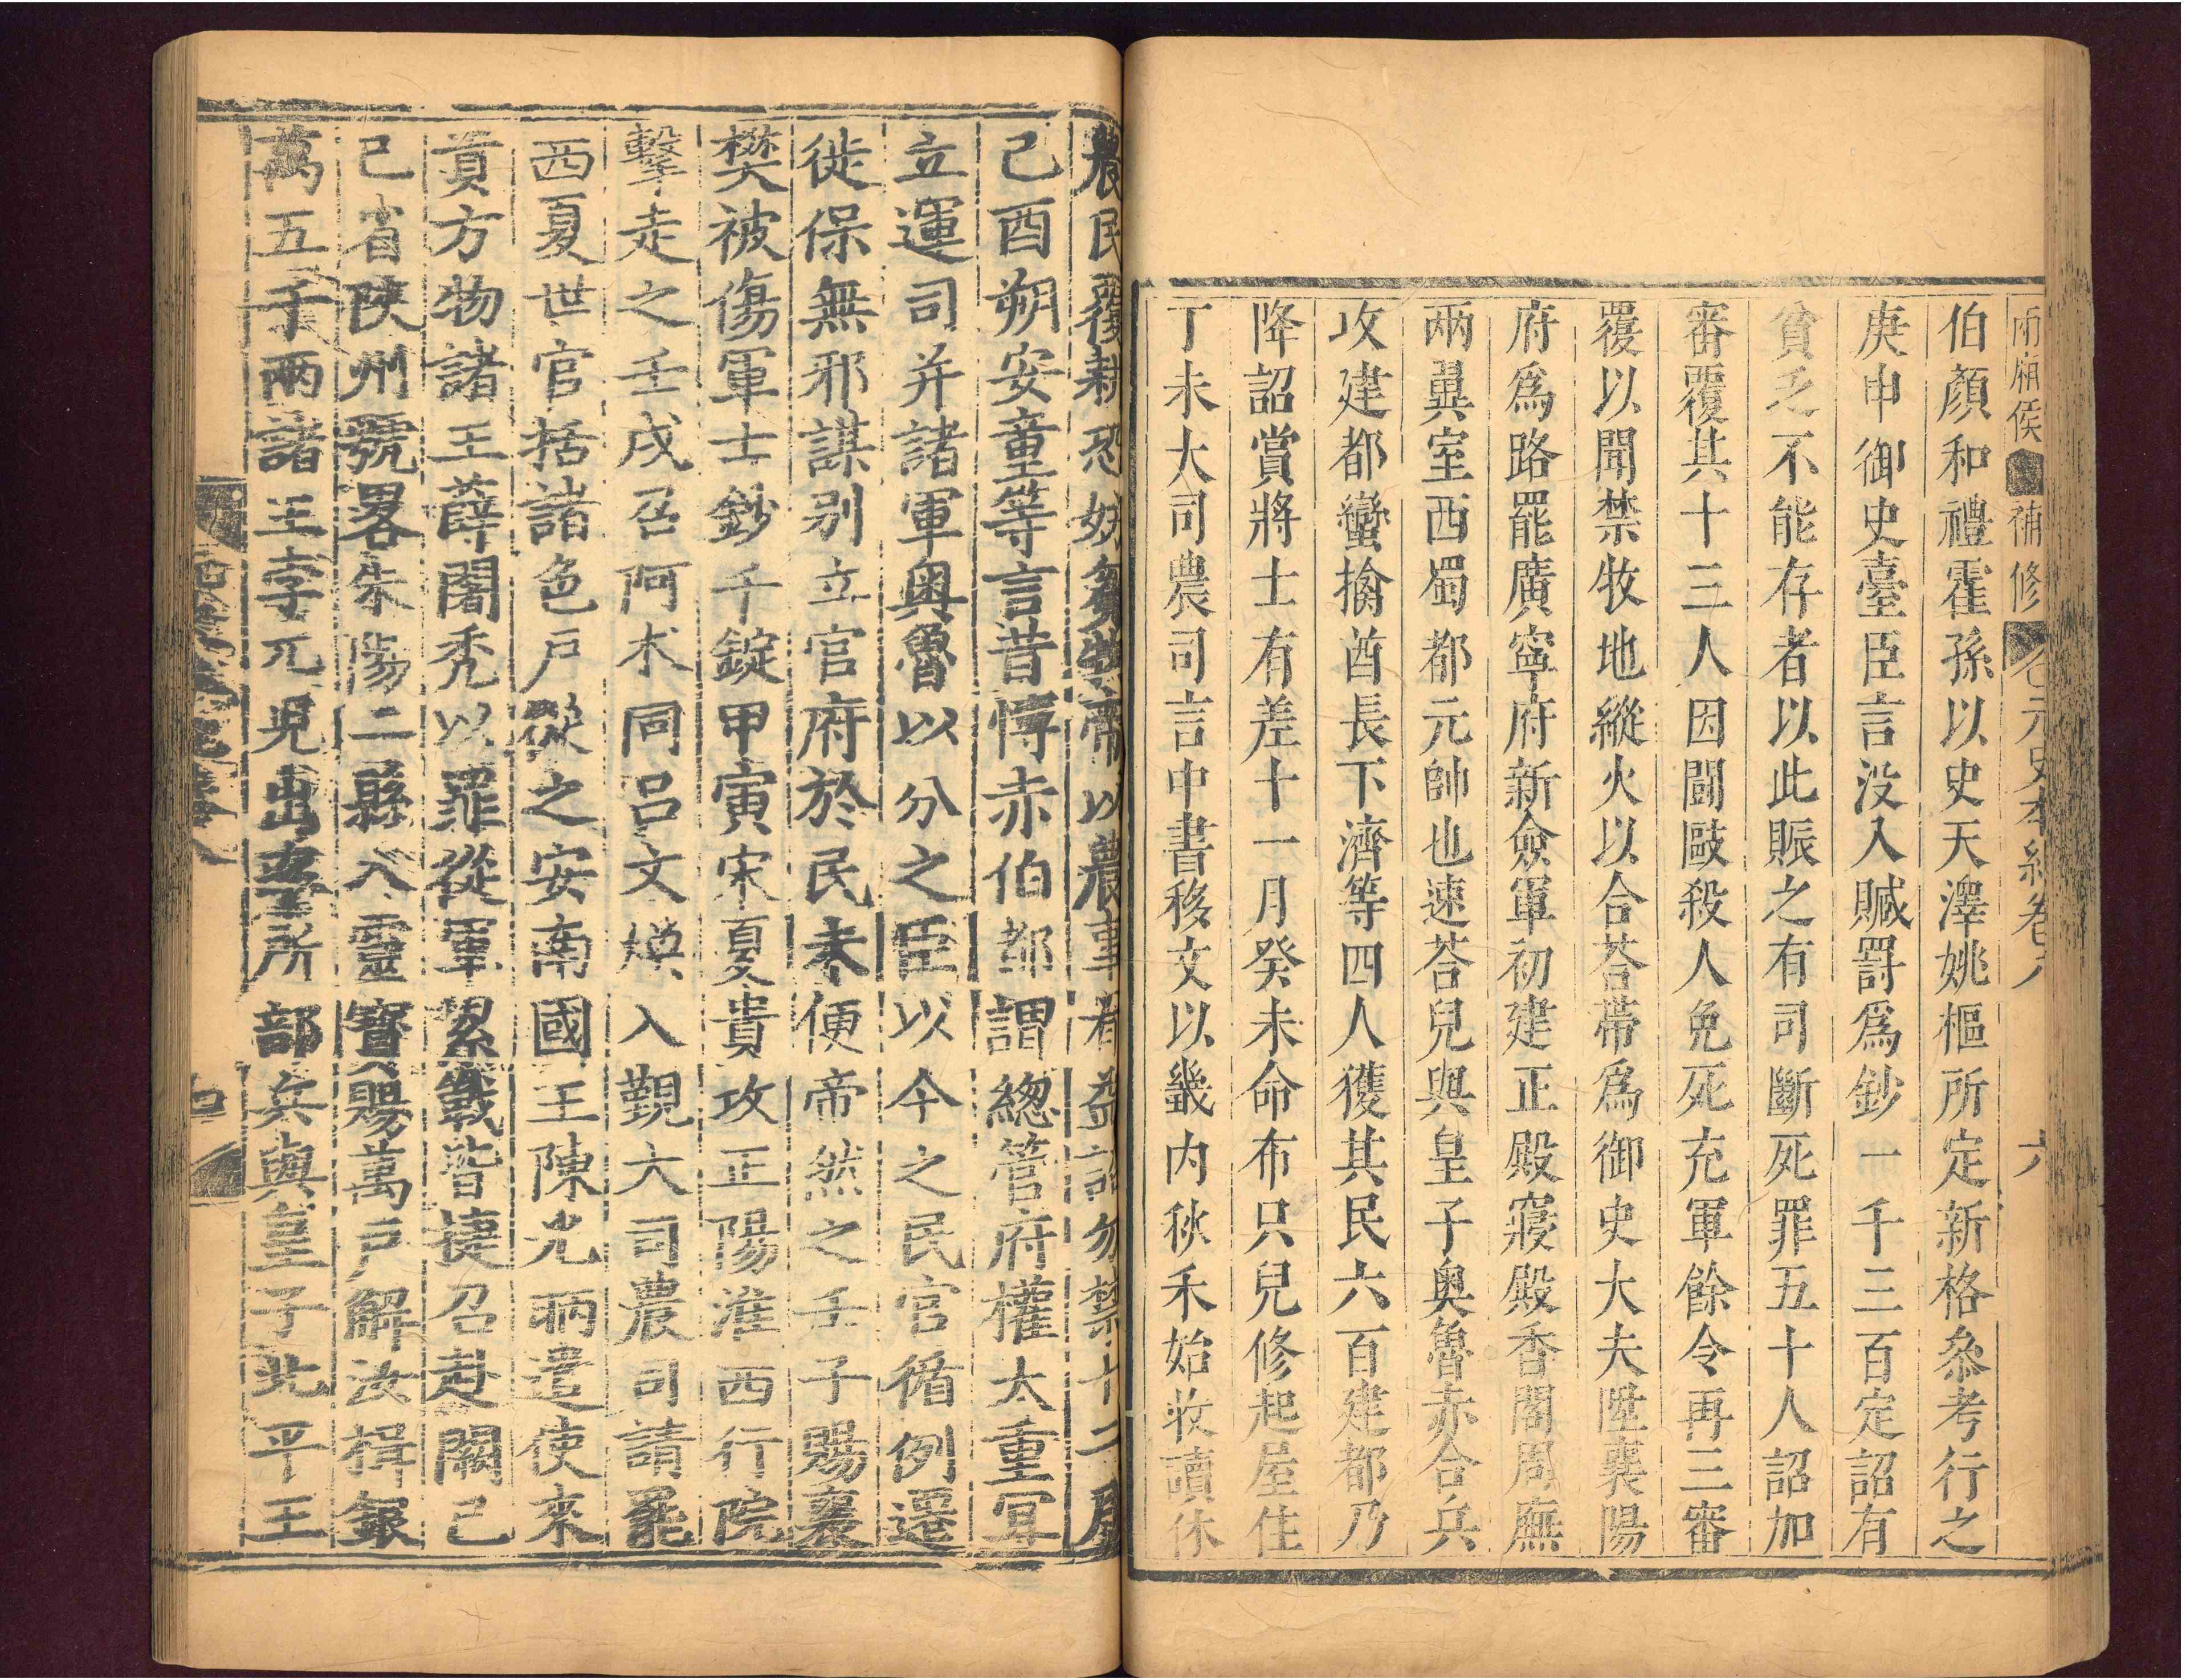 兩廂侯 補修 元史本紀卷八 六
伯顏和禮霍孫以史天澤姚樞所定新格叅考行之
庚申御史臺臣言没入贓罸爲鈔一千三百定詔有
貧乏不能存者以此賑之有司斷死罪五十人詔加
審覆其十三人因鬪敺殺人免死充軍餘令再三審
覆以聞禁牧地縱火以合荅帶爲御史大夫陞襄陽
府爲路罷廣寧府新僉軍初建正殿寢殿香閣周廡
兩翼室西蜀都元帥也速荅兒與皇子奥魯赤合兵
攻建都蠻擒酋長下濟等四人獲其民六百建都乃
降詔賞將士有差十一月癸未命布只兒修起居住
丁未大司農司言中書移文以畿内秋禾始收請
農民覆耕恐妨芻牧帝以農事有益詔勿禁十二月
己酉朔安童等言昔博赤伯都謂總管府權太重宜
立運司并諸軍奥魯以分之臣以今之民官循例遷
徙保無邪謀别立官府於民未便帝然之壬子賜襄
樊被傷軍士鈔千錠甲寅宋夏貴攻正陽淮西行院
擊走之壬戌召阿术同吕文煥入覲大司農司請罷
西夏世官括諸色戸從之安南國王陳光昞遣使來
貢方物諸王薛闍秃以罪從軍累戰皆捷召赴闕己
巳省陜州虢畧朱陽二縣入靈寶賜萬戸解汝楫銀
萬五千兩諸王孛兀兒出率所部兵與皇子北平王